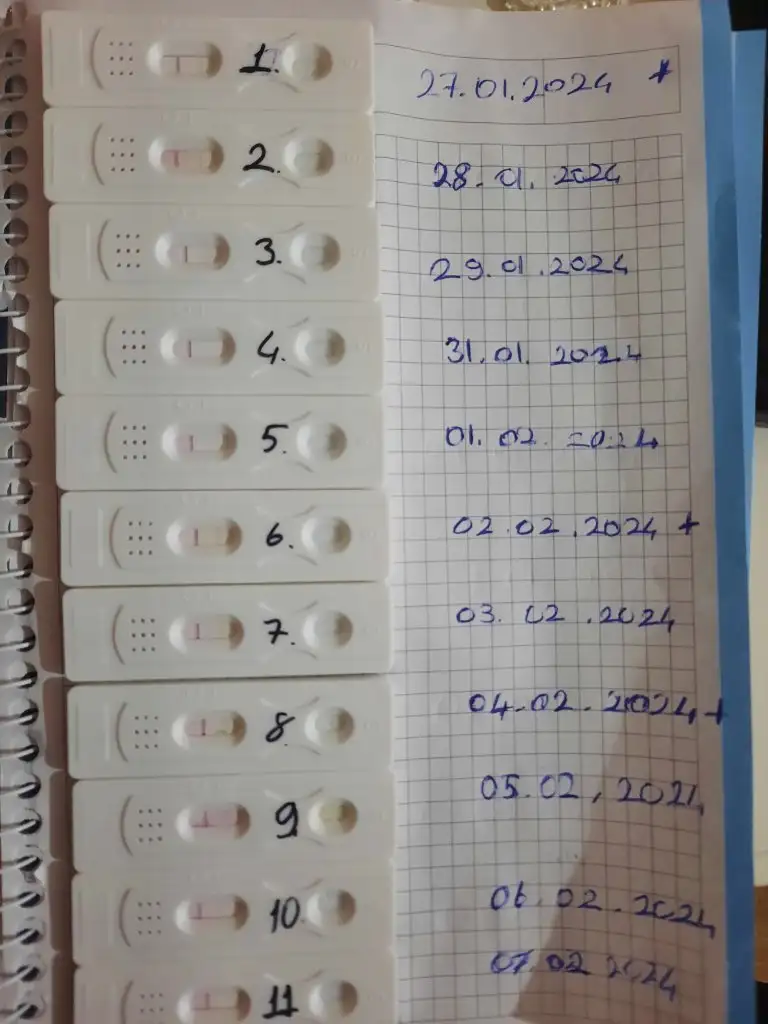 1. 27.01.2024 +
2. 28.01.2024
3. 29.01.2024
4. 31.01.2024
5. 01.02.2024
6. 02.02.2024 +
7. 03.02.2024
8. 04.02.2024 +
9 05.02.2024
10. 06.02.2024
11 07.02 2024